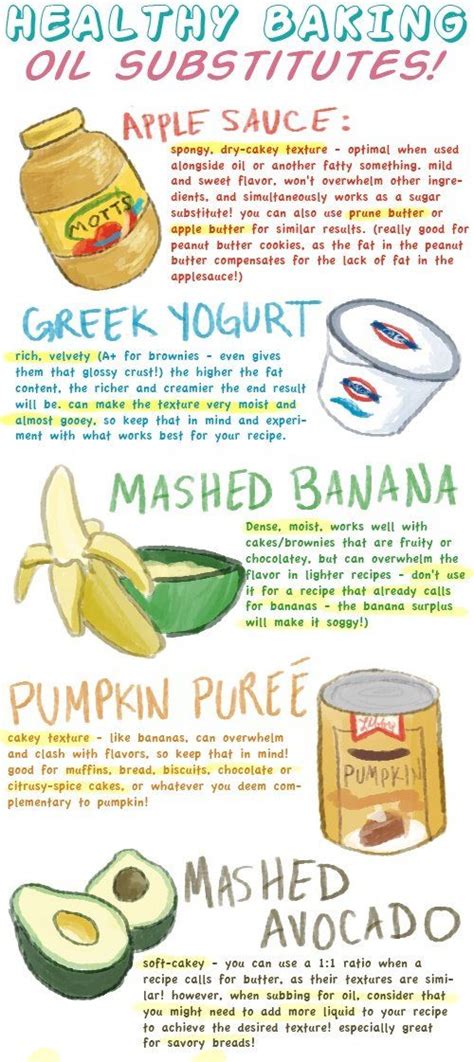 HEALTHY BAKING
OIL SUBSTITUTES!
APPLE SAUCE:
spongy, dry-cakey texture - optimal when used
alongside oil or another fatty something. mild
and sweet flavor, won't overwhelm other ingre-
dients, and simultaneously works as a sugar
substitute! you can also use prune butter or
apple butter for similar results. (really good for
peanut butter cookies, as the fat in the peanut
butter compensates for the lack of fat in the
applesauce!)
MOTTS
GREEK YOGURT
rich, velvety (A+ for brownies - even gives
them that glossy crust!) the higher the fat
content, the richer and creamier the end result
will be. can make the texture very moist and
almost gooey, so keep that in mind and experi-
ment with what works best for your recipe.
MASHED BANANA
Dense, moist, works well with
cakes/brownies that are fruity or
chocolatey, but can overwhelm the
flavor in lighter recipes - don't use
it for a recipe that already calls
for bananas - the banana surplus
will make it soggy!)
PUMPKIN PUREÉ
cakey texture - like bananas, can overwhelm
and clash with flavors, so keep that in mind!
good for muffins, bread, biscuits, chocolate or
citrusy-spice cakes, or whatever you deem com-
plementary to pumpkin!
PUMPKIN
MASHED
AVOCADO
soft-cakey - you can use a 1:1 ratio when a
recipe calls for butter, as their textures are simi-
lar! however, when subbing for oil, consider that
you might need to add more liquid to your recipe
to achieve the desired texture! especially great
for savory breads!